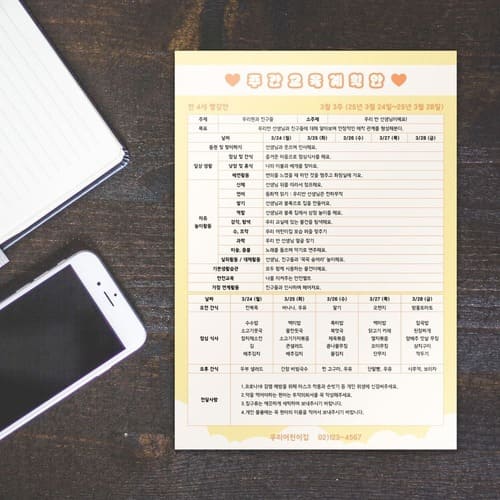 주간교육계획안
만 4세 햇살반 3월 3주 (25년 3월 24일~25년 3월 28일)
주제 우리반과 친구들 소주제 우리 반 선생님이에요!
목표 우리반 선생님과 친구들에 대해 알아보며 안정적인 애착 관계를 형성해본다.
날짜 3/24 (월) 3/25 (화) 3/26 (수) 3/27 (목) 3/28 (금)
일상 생활
등원 및 맞이하기 선생님과 웃으며 인사해요.
점심 및 간식 즐거운 마음으로 점심식사를 해요.
낮잠 및 휴식 나의 이불과 베개를 찾아요.
배변활동 변의를 느꼈을 때 하던 것을 멈추고 화장실에 가요.
자유 놀이활동
신체 선생님 뒤를 따라서 점프해요.
언어 동화책 읽기 : 우리반 선생님은 천하무적
쌓기 선생님과 블록으로 집을 만들어요.
역할 선생님과 블록 집에서 상점 놀이를 해요.
감각, 탐색 우리 교실에 있는 물건을 탐색해요.
수, 조작 우리 어린이집 모습 퍼즐 맞추기
과학 우리 반 선생님 얼굴 찾기
미술, 음률 노래를 들으며 악기로 연주해요.
실외활동 / 대체활동 선생님, 친구들과 '꼭꼭 숨어라' 놀이해요.
기본생활습관 모두 함께 사용하는 물건이에요.
안전교육 나를 지켜주는 안전벨트.
가정 연계활동 친구들과 인사하며 헤어져요.
날짜 3/24 (월) 3/25 (화) 3/26 (수) 3/27 (목) 3/28 (금)
오전 간식 전복죽 바나나, 우유 딸기 오렌지
점심 식사
수수밥 백미밥 흑미밥 백미밥 잡곡밥
소고기뭇국 물만둣국 북엇국 닭고기 카레 된장찌개
참치채소전 소고기가지볶음 제육볶음 멸치볶음
김 콘샐러드 콩나물무침 오이무침
배추김치 배추김치 물김치 단무지 깍두기
오후 간식 두부 샐러드 간장 비빔국수 찐 고구마, 우유 단팥빵, 우유 시루떡, 보리차
전달사항
1.코로나19 감염 예방을 위해 마스크 착용과 손씻기 등 개인 위생에 신경써주세요.
2.약을 먹어야하는 원아는 투약의뢰서를 꼭 작성해주세요.
3.침구류는 깨끗하게 세탁하여 보내주시기 바랍니다.
4.개인 물품에는 꼭 원아의 이름을 적어서 보내주시기 바랍니다.
우리어린이집 02)123-4567